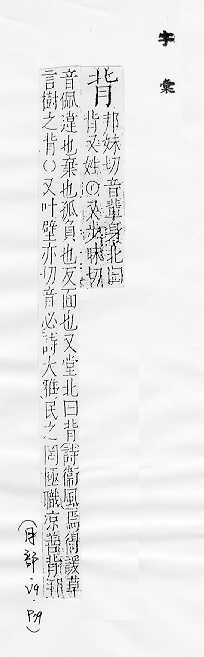 字彙
背
邦妹切音輩身北曰
背又姓○又步昧切
音佩違也棄也孤負也反面也又堂北曰背詩衛風焉得諼草
言樹之背○又叶壁亦切音必詩大雅民之罔極職涼善背
(月部.v9.P39)